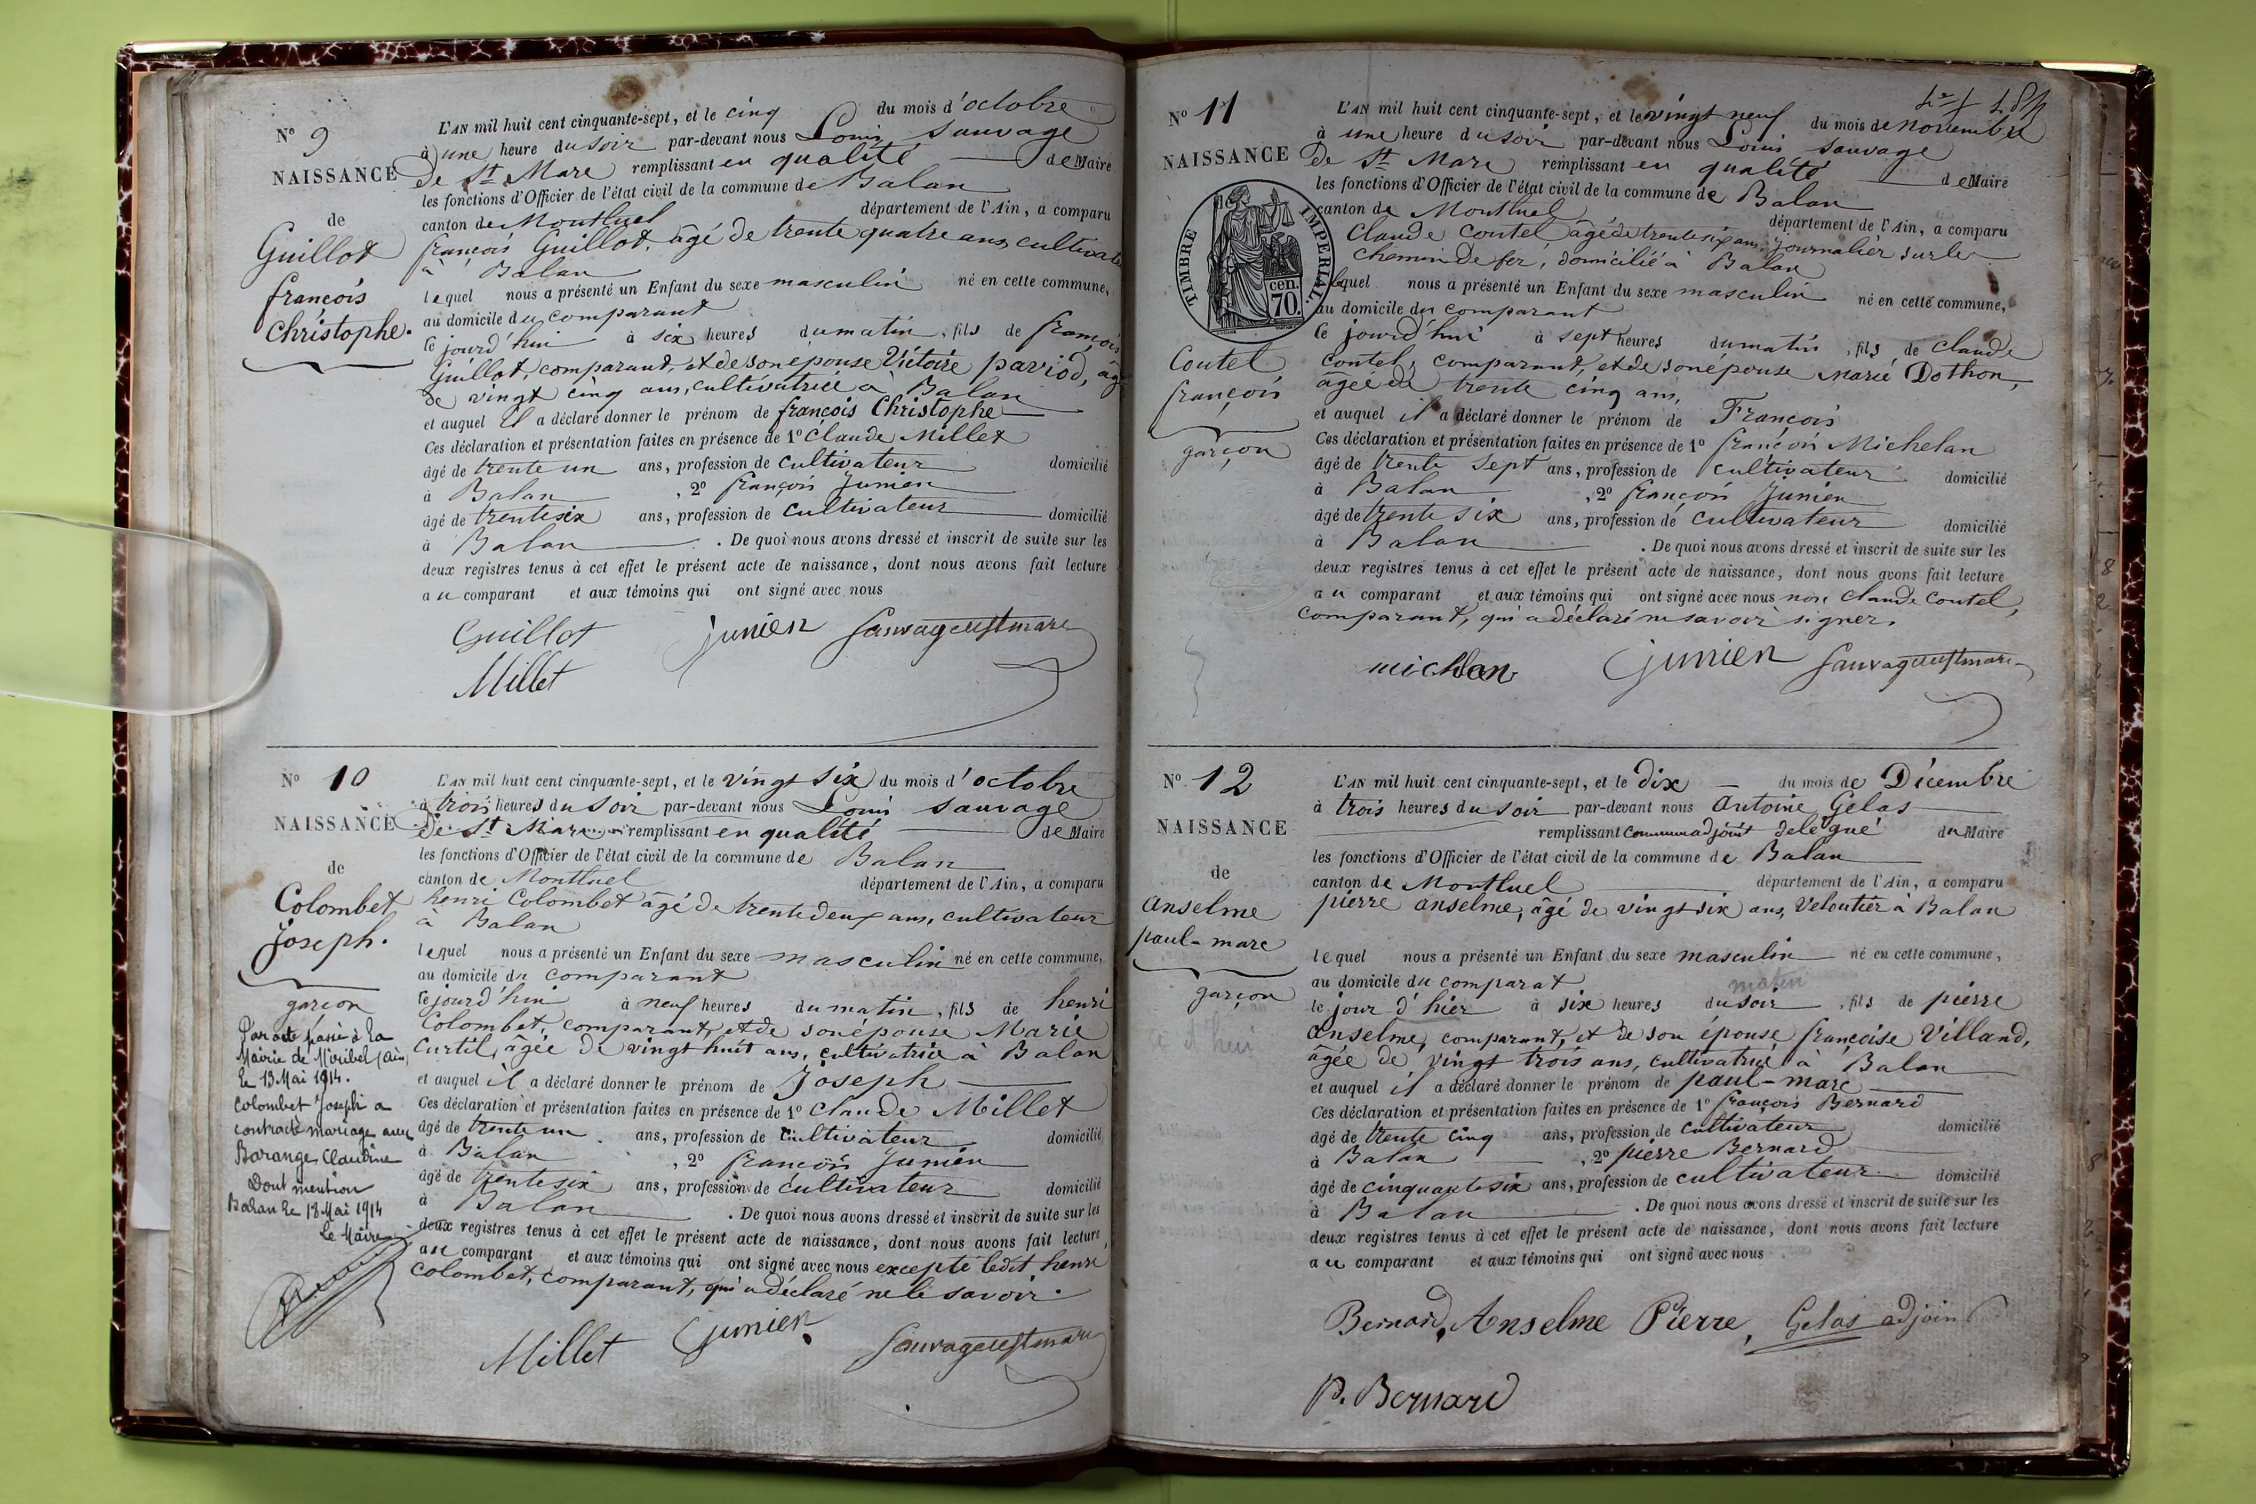 Nº 9
NAISSANCE
de
Guillot
françois
Christophe.
L'AN mil huit cent cinquante-sept, et le cinq du mois d'octobre
à une heure du soir par-devant nous Louis Sauvage
de St Mare remplissant en qualité de Maire
les fonctions d'Officier de l'état civil de la commune de Balan
canton de Montluel département de l'Ain, a comparu
françois Guillot, âgé de trente quatre ans, cultivateur
à Balan
lequel nous a présenté un Enfant du sexe masculin né en cette commune,
au domicile du comparant
le jourd'hui à six heures du matin, fils de françois
Guillot, comparant, et de son épouse Victoire pariod, agée
de vingt cinq ans, cultivatrice à Balan
et auquel il a déclaré donner le prénom de françois Christophe
Ces déclaration et présentation faites en présence de 1º Claude Millet
âgé de trente un ans, profession de cultivateur domicilié
à Balan, 2º françois Junien
âgé de trente six ans, profession de cultivateur domicilié
à Balan. De quoi nous avons dressé et inscrit de suite sur les
deux registres tenus à cet effet le présent acte de naissance, dont nous avons fait lecture
au comparant et aux témoins qui ont signé avec nous
Guillot junien Sauvagedestmare
Millet
Nº 10
NAISSANCE
de
Colombet
joseph.
garçon
Par acte passé à la
Mairie de Miribel (Ain)
le 13 Mai 1914.
Colombet Joseph a
contracté mariage avec
Barange Claudine
Dont mention
Balan le 18 Mai 1914
Le Maire
L'AN mil huit cent cinquante-sept, et le vingt six du mois d'octobre
à trois heures du soir par-devant nous Louis Sauvage
de St Mare remplissant en qualité de Maire
les fonctions d'Officier de l'état civil de la commune de Balan
canton de Montluel département de l'Ain, a comparu
henri Colombet âgé de trente deux ans, cultivateur
à Balan
lequel nous a présenté un Enfant du sexe masculin né en cette commune,
au domicile du comparant
le jourd'hui à neuf heures du matin, fils de henri
Colombet, comparant, et de son épouse Marie
Curtil, âgée de vingt huit ans, cultivatrice à Balan
et auquel il a déclaré donner le prénom de Joseph
Ces déclaration et présentation faites en présence de 1º Claude Millet
âgé de trente un ans, profession de cultivateur domicilié
à Balan, 2º françois Junien
âgé de trente six ans, profession de cultivateur domicilié
à Balan. De quoi nous avons dressé et inscrit de suite sur les
deux registres tenus à cet effet le présent acte de naissance, dont nous avons fait lecture
au comparant et aux témoins qui ont signé avec nous excepté ledit henri
Colombet, comparant, qui a déclaré ne le savoir.
Millet junien Sauvagedestmare
Nº 11
NAISSANCE
TIMBRE IMPERIAL.
70 cen.
Coutel
françois
garçon
L'AN mil huit cent cinquante-sept, et le vingt neuf du mois de novembre
à une heure du soir par-devant nous Louis Sauvage
de St Mare remplissant en qualité de Maire
les fonctions d'Officier de l'état civil de la commune de Balan
canton de Montluel département de l'Ain, a comparu
Claude Coutel âgé de trente six ans, journalier sur le
chemin de fer, domicilié à Balan
lequel nous a présenté un Enfant du sexe masculin né en cette commune,
au domicile du comparant
le jourd'hui à sept heures du matin, fils de Claude
Coutel, comparant, et de son épouse Marie Dothon,
âgée de trente cinq ans,
et auquel il a déclaré donner le prénom de François
Ces déclaration et présentation faites en présence de 1º françois Michelan
âgé de trente sept ans, profession de cultivateur domicilié
à Balan, 2º françois Junien
âgé de trente six ans, profession de cultivateur domicilié
à Balan. De quoi nous avons dressé et inscrit de suite sur les
deux registres tenus à cet effet le présent acte de naissance, dont nous avons fait lecture
au comparant et aux témoins qui ont signé avec nous non Claude Coutel,
comparant, qui a déclaré ne savoir signer.
michlan junien Sauvagedestmare
Nº 12
NAISSANCE
de
Anselme
paul-marc
garçon
L'AN mil huit cent cinquante-sept, et le dix du mois de Décembre
à trois heures du soir par-devant nous Antoine Gelas
remplissant comme adjoint délégué du Maire
les fonctions d'Officier de l'état civil de la commune de Balan
canton de Montluel département de l'Ain, a comparu
pierre anselme, âgé de vingt six ans, Veloutier à Balan
lequel nous a présenté un Enfant du sexe masculin né en cette commune,
au domicile du comparat
matin
le jour d'hier à six heures du soir, fils de pierre
anselme, comparant, et de son épouse françoise Villand,
âgée de vingt trois ans, cultivatrice à Balan
et auquel il a déclaré donner le prénom de paul-marc
Ces déclaration et présentation faites en présence de 1º françois Bernard
âgé de trente cinq ans, profession de cultivateur domicilié
à Balan, 2º pierre Bernard
âgé de cinquante six ans, profession de cultivateur domicilié
à Balan. De quoi nous avons dressé et inscrit de suite sur les
deux registres tenus à cet effet le présent acte de naissance, dont nous avons fait lecture
au comparant et aux témoins qui ont signé avec nous
Bernard, Anselme Pierre, Gelas adjoint
P. Bernard